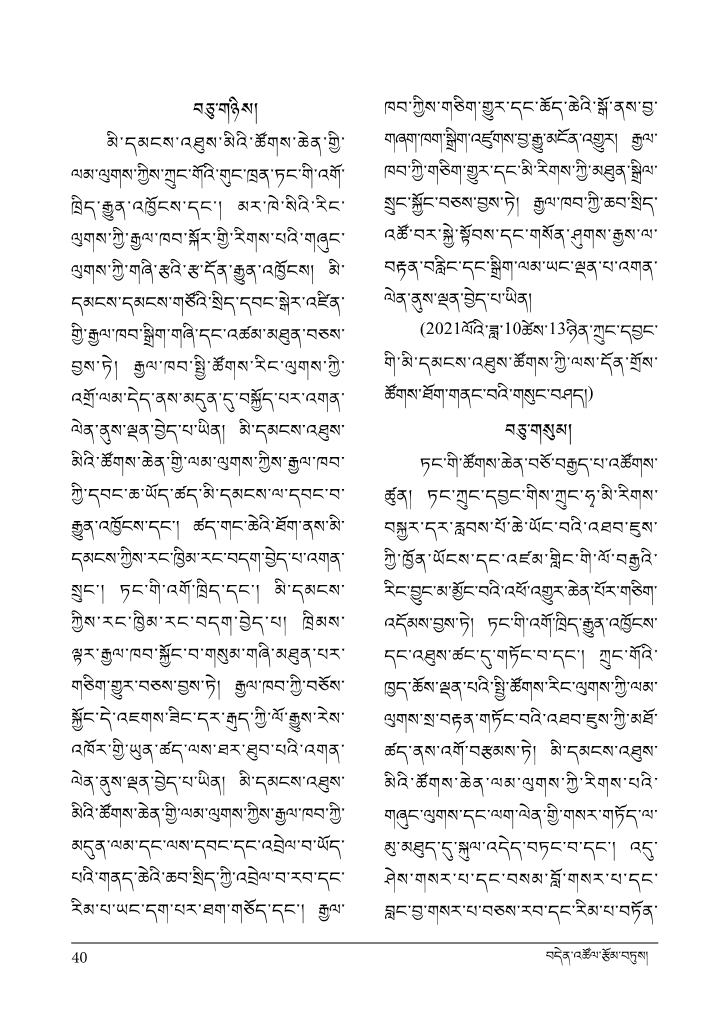 བཅུ་གཉིས།
མི་དམངས་འཐུས་མིའི་ཚོགས་ཆེན་གྱི་
ལམ་ལུགས་ཀྱིས་ཀྲུང་གོའི་གུང་ཁྲན་ཏང་གི་འགོ་
ཁྲིད་རྒྱུན་འཁྱོངས་དང་། མར་ཁེ་སིའི་རིང་
ལུགས་ཀྱི་རྒྱལ་ཁབ་སྐོར་གྱི་རིགས་པའི་གཞུང་
ལུགས་ཀྱི་གཞི་རྩའི་རྩ་དོན་རྒྱུན་འཁྱོངས། མི་
དམངས་དམངས་གཙོའི་སྲིད་དབང་སྒེར་འཛིན་
གྱི་རྒྱལ་ཁབ་སྒྲིག་གཞི་དང་འཚམ་མཐུན་བཅས་
བྱས་ཏེ། རྒྱལ་ཁབ་སྤྱི་ཚོགས་རིང་ལུགས་ཀྱི་
འགྲོ་ལམ་དེད་ནས་མདུན་དུ་བསྐྱོད་པར་འགན་
ལེན་ནུས་ལྡན་བྱེད་པ་ཡིན། མི་དམངས་འཐུས་
མིའི་ཚོགས་ཆེན་གྱི་ལམ་ལུགས་ཀྱིས་རྒྱལ་ཁབ་
ཀྱི་དབང་ཆ་ཡོད་ཚད་མི་དམངས་ལ་དབང་བ་
རྒྱུན་འཁྱོངས་དང་། ཚད་གང་ཆེའི་ཐོག་ནས་མི་
དམངས་ཀྱིས་རང་ཁྱིམ་རང་བདག་བྱེད་པ་འགན་
སྲུང་། ཏང་གི་འགོ་ཁྲིད་དང་། མི་དམངས་
ཀྱིས་རང་ཁྱིམ་རང་བདག་བྱེད་པ། ཁྲིམས་
ལྟར་རྒྱལ་ཁབ་སྐྱོང་བ་གསུམ་གཞི་མཐུན་པར་
གཅིག་གྱུར་བཅས་བྱས་ཏེ། རྒྱལ་ཁབ་ཀྱི་བཅོས་
སྐྱོང་དེ་འཇགས་ཟིང་དར་རྒུད་ཀྱི་ལོ་རྒྱུས་རེས་
འཁོར་གྱི་ཡུན་ཚད་ལས་ཐར་ཐུབ་པའི་འགན་
ལེན་ནུས་ལྡན་བྱེད་པ་ཡིན། མི་དམངས་འཐུས་
མིའི་ཚོགས་ཆེན་གྱི་ལམ་ལུགས་ཀྱིས་རྒྱལ་ཁབ་ཀྱི་
མདུན་ལམ་དང་ལས་དབང་དང་འབྲེལ་བ་ཡོད་
པའི་གནད་ཆེའི་ཆབ་སྲིད་ཀྱི་འབྲེལ་བ་རབ་དང་
རིམ་པ་ཡང་དག་པར་ཐག་གཅོད་དང་། རྒྱལ་
ཁབ་ཀྱིས་གཅིག་གྱུར་དང་ཚོད་ཆེའི་སྒོ་ནས་བྱ་
གཞག་ཁག་སྒྲིག་འཛུགས་བྱ་རྒྱུ་མངོན་འགྱུར། རྒྱལ་
ཁབ་ཀྱི་གཅིག་གྱུར་དང་མི་རིགས་ཀྱི་མཐུན་སྒྲིལ་
སྲུང་སྐྱོང་བཅས་བྱས་ཏེ། རྒྱལ་ཁབ་ཀྱི་ཆབ་སྲིད་
འཚོ་བར་སྐྱེ་སྟོབས་དང་གསོན་ཤུགས་རྒྱས་ལ་
བརྟན་བརླིང་དང་སྒྲིག་ལམ་ཡང་ལྡན་པ་འགན་
ལེན་ནུས་ལྡན་བྱེད་པ་ཡིན།
(2021ལོའི་ཟླ་10ཚེས་13ཉིན་ཀྲུང་དབྱང་
གི་མི་དམངས་འཐུས་ཚོགས་ཀྱི་ལས་དོན་གྲོས་
ཚོགས་ཐོག་གནང་བའི་གསུང་བཤད།)
བཅུ་གསུམ།
ཏང་གི་ཚོགས་ཆེན་བཅོ་བརྒྱད་པ་འཚོགས་
ཚུན། ཏང་ཀྲུང་དབྱང་གིས་ཀྲུང་ཧྭ་མི་རིགས་
བསྐྱར་དར་རླབས་པོ་ཆེ་ཡོང་བའི་འཐབ་ཇུས་
ཀྱི་ཁྱོན་ཡོངས་དང་འཛམ་གླིང་གི་ལོ་བརྒྱའི་
རིང་བྱུང་མ་མྱོང་བའི་འཕོ་འགྱུར་ཆེན་པོར་གཅིག་
འདོམས་བྱས་ཏེ། ཏང་གི་འགོ་ཁྲིད་རྒྱུན་འཁྱོངས་
དང་འཐུས་ཚང་དུ་གཏོང་བ་དང་། ཀྲུང་གོའི་
ཁྱད་ཆོས་ལྡན་པའི་སྤྱི་ཚོགས་རིང་ལུགས་ཀྱི་ལམ་
ལུགས་སྲ་བརྟན་གཏོང་བའི་འཐབ་ཇུས་ཀྱི་མཐོ་
ཚད་ནས་འགོ་བརྩམས་ཏེ། མི་དམངས་འཐུས་
མིའི་ཚོགས་ཆེན་ལམ་ལུགས་ཀྱི་རིགས་པའི་
གཞུང་ལུགས་དང་ལག་ལེན་གྱི་གསར་གཏོད་ལ་
མུ་མཐུད་དུ་སྐུལ་འདེད་བཏང་བ་དང་། འདུ་
ཤེས་གསར་པ་དང་བསམ་བློ་གསར་པ་དང་
བླང་བྱ་གསར་པ་བཅས་རབ་དང་རིམ་པ་བཏོན་
40
བདེན་འཚོལ་རྩོམ་བཏུས།